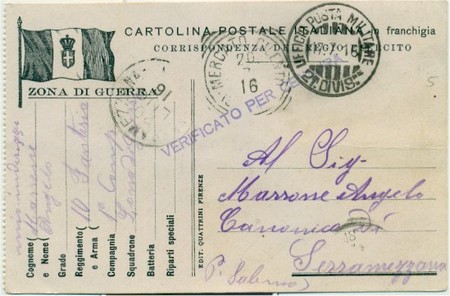 CARTOLINA POSTALE ITALIANA in franchigia
CORRISPONDENZA DEL REGIO ESERCITO
ZONA DI GUERRA
UFFICIO POSTA MILITARE
DIVIS.
MERCATO
20
16
VERIFICATO PER
Al Sig.
Marrone Angelo
Canonico di
Serramezzana
Pª Salerno
EDIT. QUATTRINI FIRENZE
Cognome Marrone
e Nome Angelo
Grado
Reggimento
e Arma
Compagnia
Squadrone
Batteria
Riparti speciali